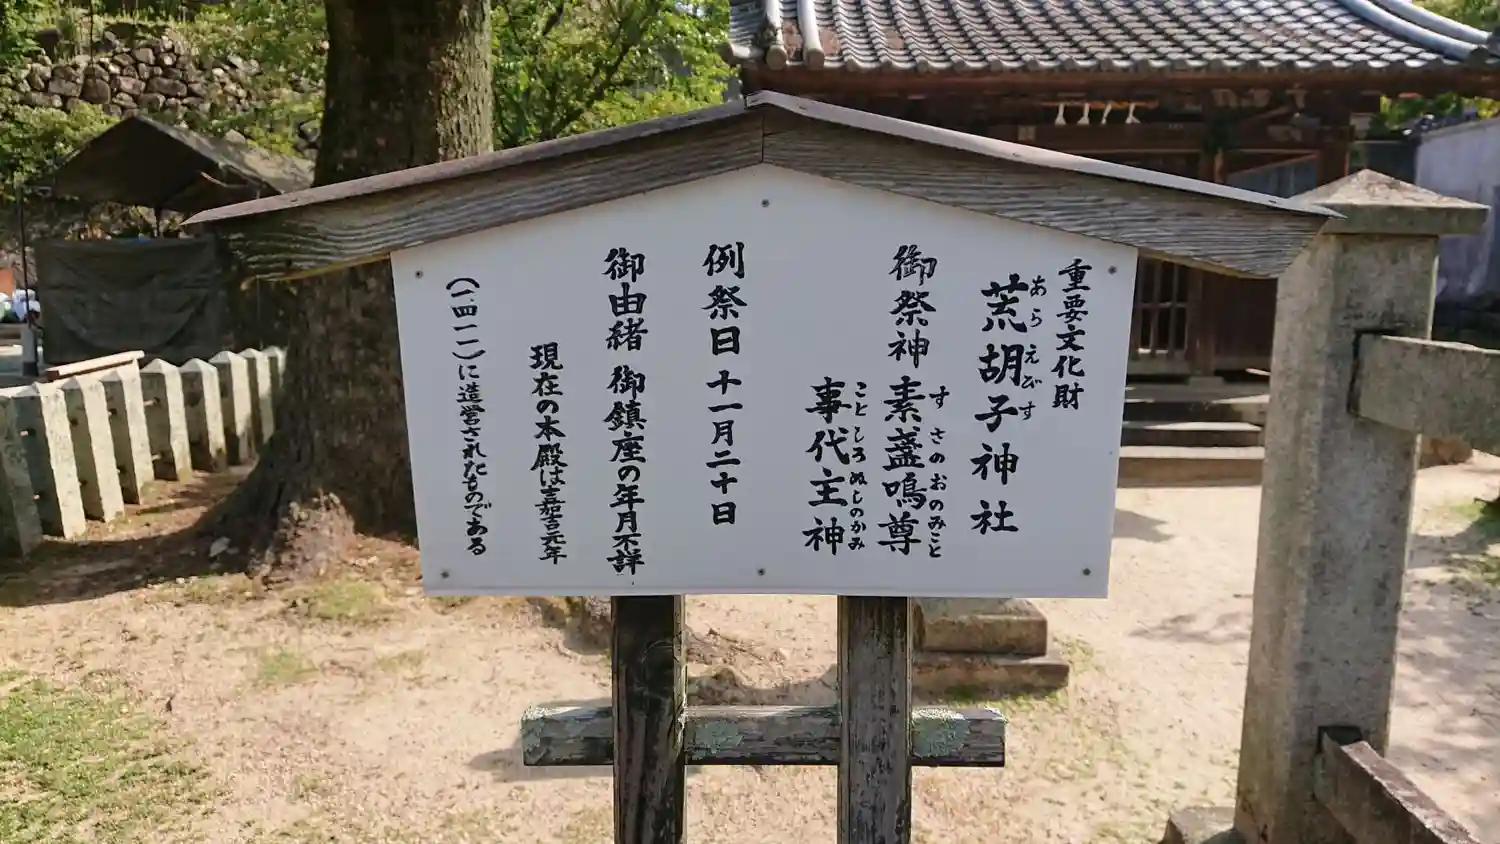 重要文化財
荒胡子神社
あらえびす
御祭神 素盞嗚尊
すさのおのみこと
事代主神
ことしろぬしのかみ
例祭日 十一月二十日
御由緒 御鎮座の年月不詳
現在の本殿は嘉吉元年
(一四一一)に造営されたものである